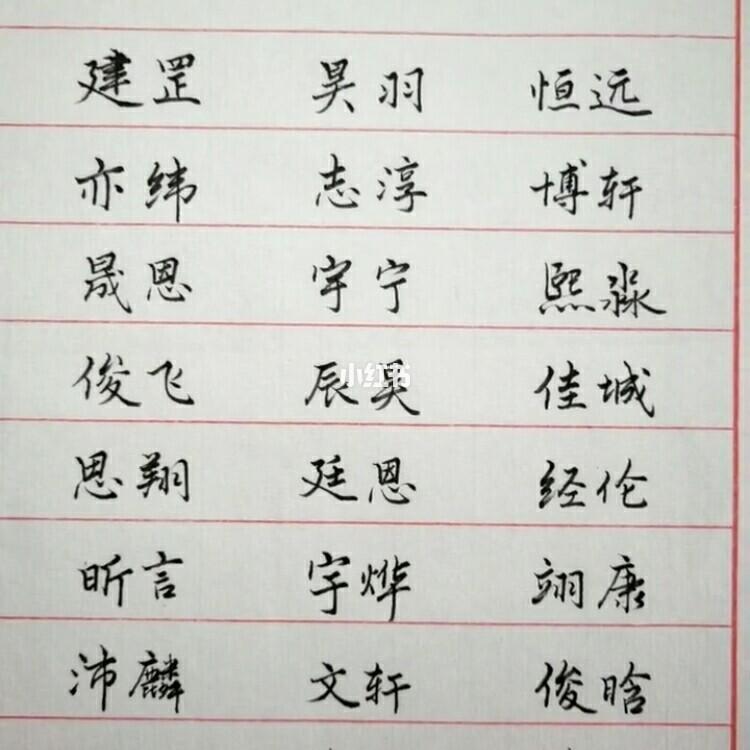 建罡 昊羽 恒远
亦纬 志淳 博轩
晟恩 宇宁 熙淼
俊飞 辰昊 佳城
小红书
恩翔 廷恩 经伦
昕言 宇烨 翊康
沛麟 文轩 俊晗